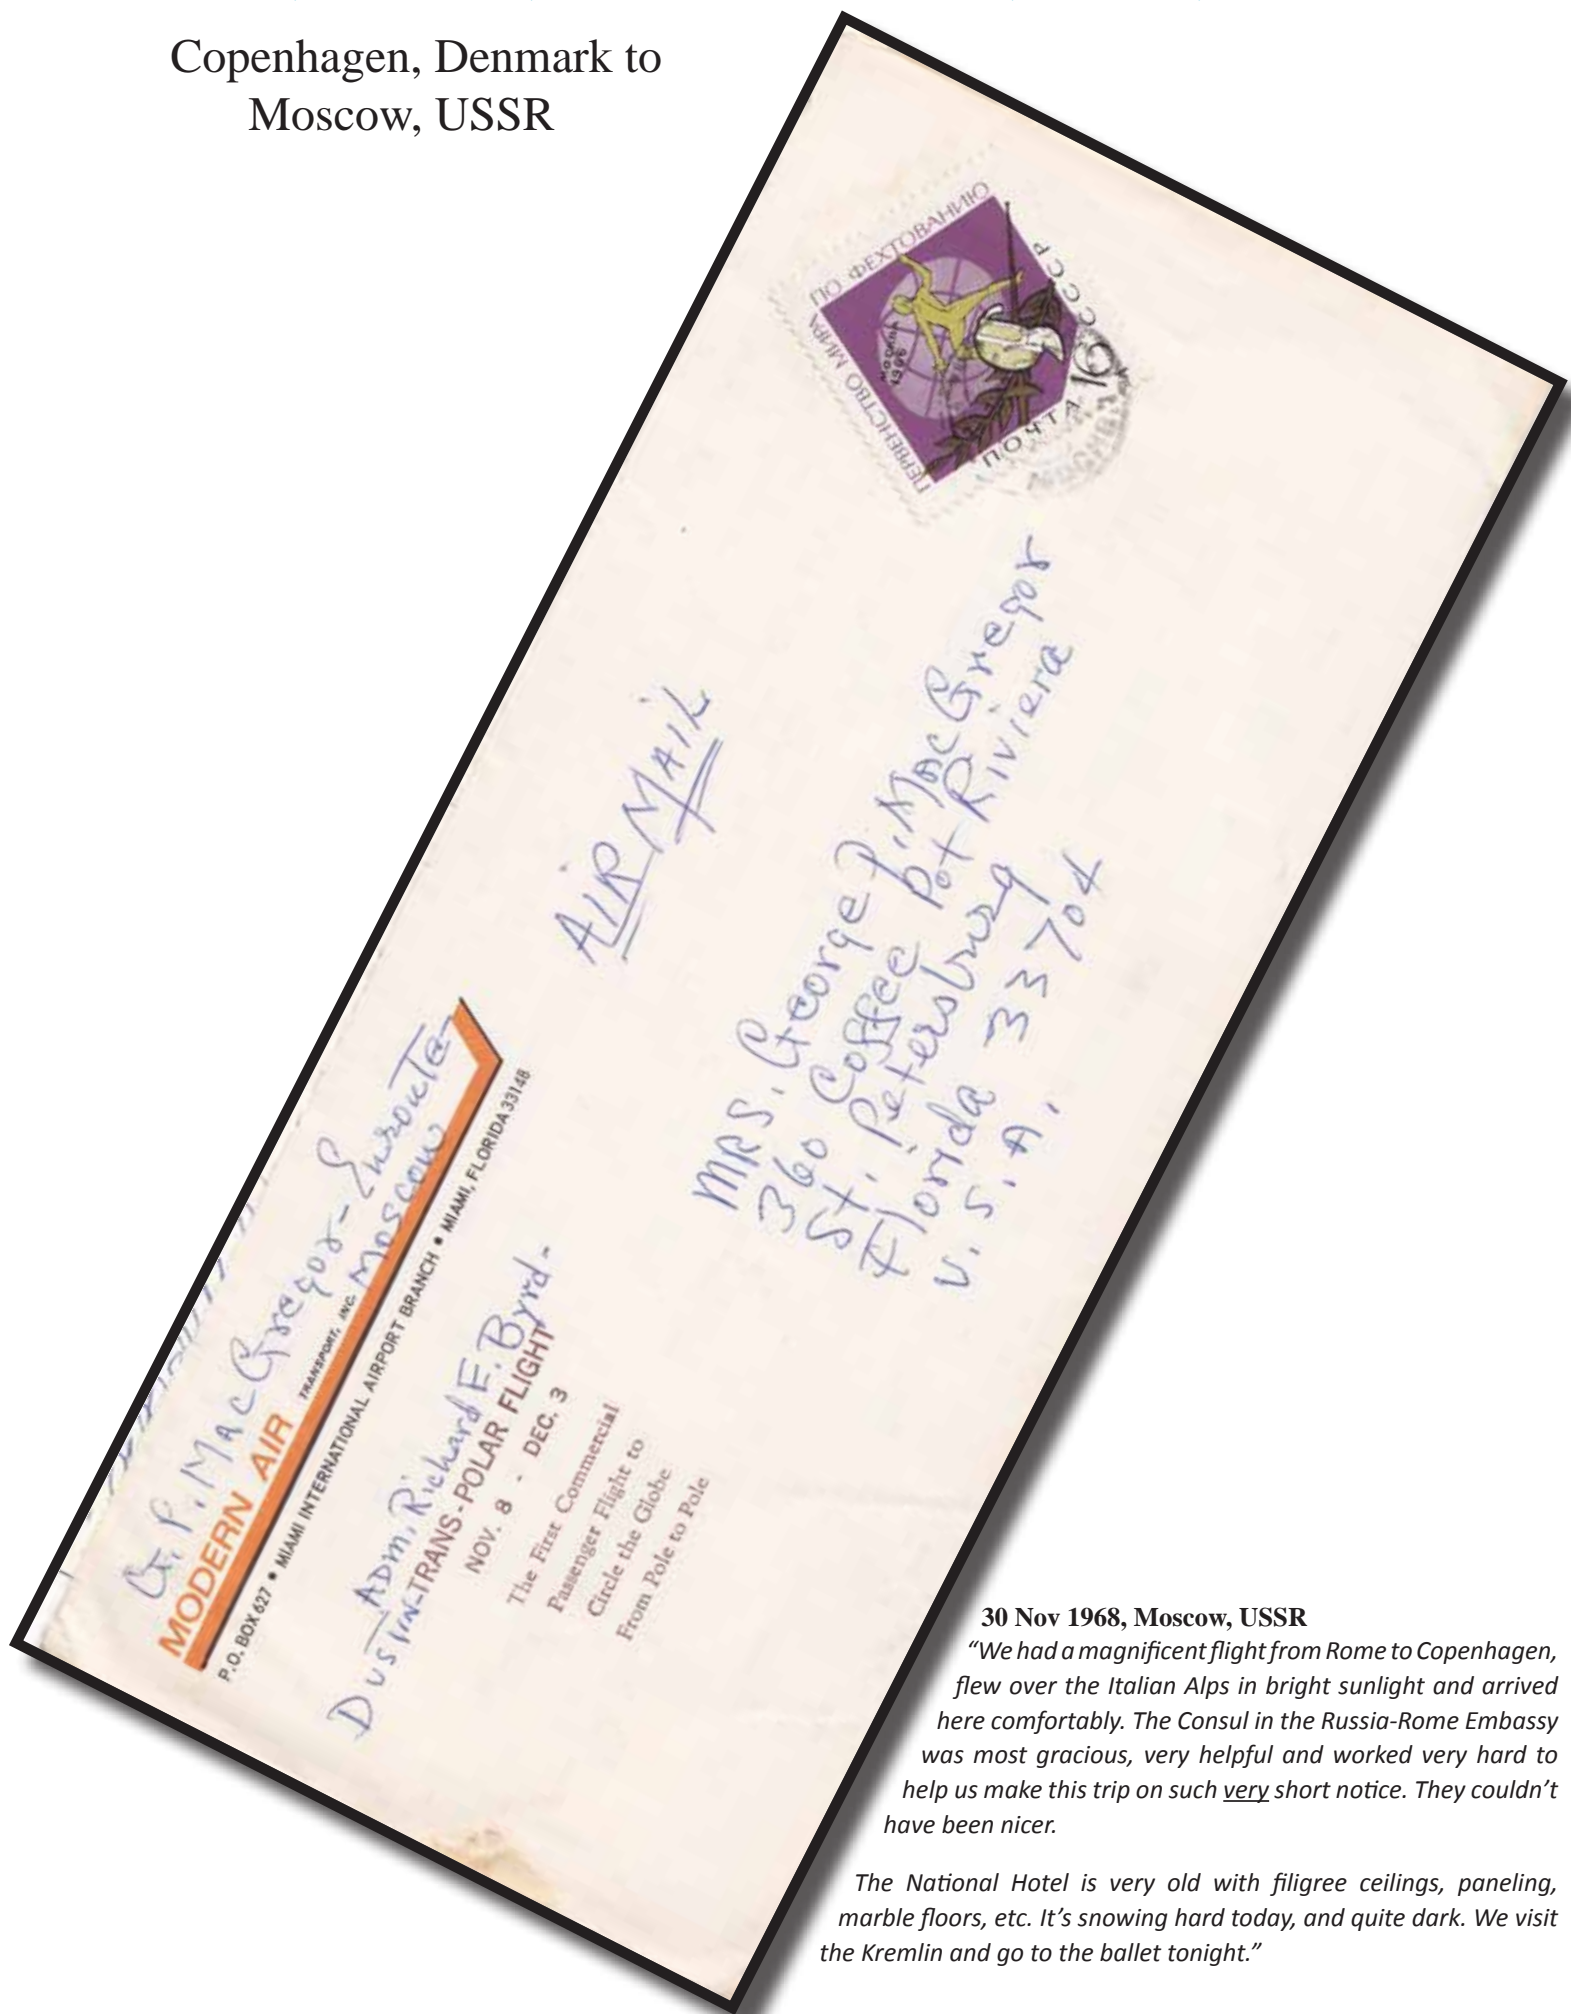 Copenhagen, Denmark to
Moscow, USSR
ПЕРВЕНСТВО МИРА ПО ФЕХТОВАНИЮ
МОСКВА
1966
ПОЧТА 16 СССР
AIR MAIL
G. P. MacGregor - Enroute -
Moscow
MODERN AIR TRANSPORT, INC.
P.O. BOX 627 • MIAMI INTERNATIONAL AIRPORT BRANCH • MIAMI, FLORIDA 33148
Adm. Richard E. Byrd -
Dustin - TRANS-POLAR FLIGHT
NOV. 8 - DEC. 3
The First Commercial
Passenger Flight to
Circle the Globe
From Pole to Pole
MRS. George P. MacGregor
360 Coffee Pot Riviera
St. Petersburg
Florida 33704
U.S.A.
30 Nov 1968, Moscow, USSR
“We had a magnificent flight from Rome to Copenhagen,
flew over the Italian Alps in bright sunlight and arrived
here comfortably. The Consul in the Russia-Rome Embassy
was most gracious, very helpful and worked very hard to
help us make this trip on such very short notice. They couldn’t
have been nicer.
The National Hotel is very old with filigree ceilings, paneling,
marble floors, etc. It’s snowing hard today, and quite dark. We visit
the Kremlin and go to the ballet tonight.”